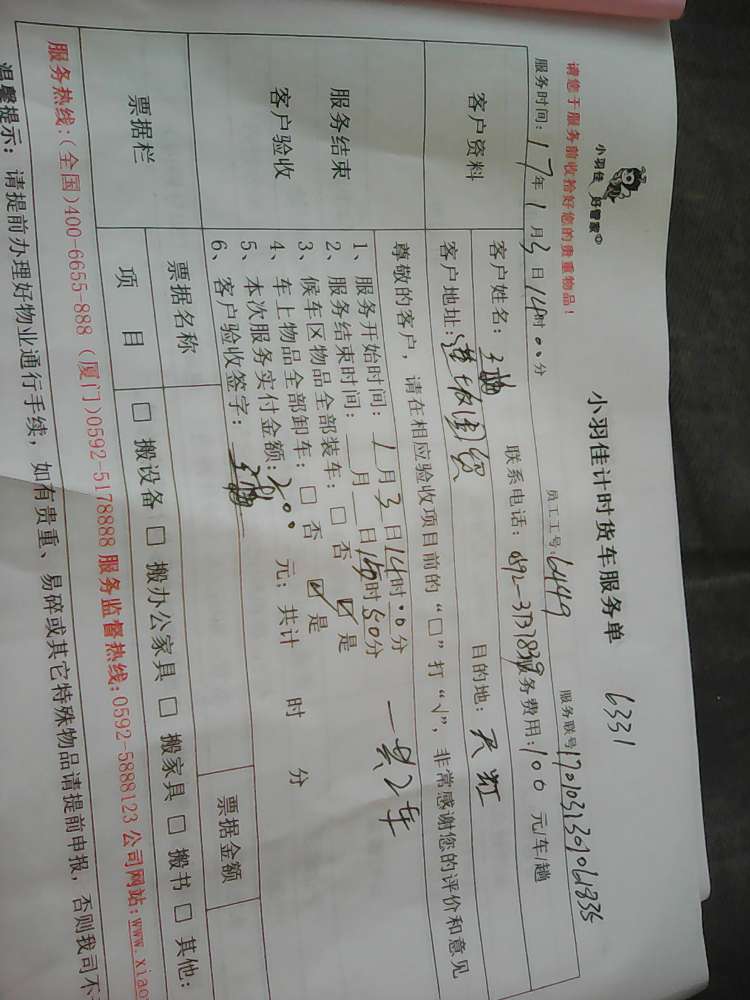 小羽佳 好管家
小羽佳计时货车服务单 6331
请您于服务前收拾好您的贵重物品!
员工工号:6449 服务联号
服务时间:17年1月3日14时00分
客户资料
客户姓名: 联系电话: 服务费用:100 元/车/趟
客户地址: 目的地:天虹
服务结束
客户验收
尊敬的客户,请在相应验收项目前的“□”打“√”,非常感谢您的评价和意见
1、服务开始时间:1月3日14时00分
2、服务结束时间: 月 日15时50分 一共2车
3、候车区物品全部装车:□ 否 ☑ 是
4、车上物品全部卸车:□ 否 ☑ 是
5、本次服务实付金额:200 元;共计 时 分
6、客户验收签字:
票据栏
票据名称 票据金额
项 目 □ 搬设备 □ 搬办公家具 □ 搬家具 □ 搬书 □ 其他:
服务热线:(全国)400-6655-888 (厦门)0592-5178888 服务监督热线:0592-5888123 公司网站:www.xiao
温馨提示: 请提前办理好物业通行手续,如有贵重、易碎或其它特殊物品请提前申报,否则我司不